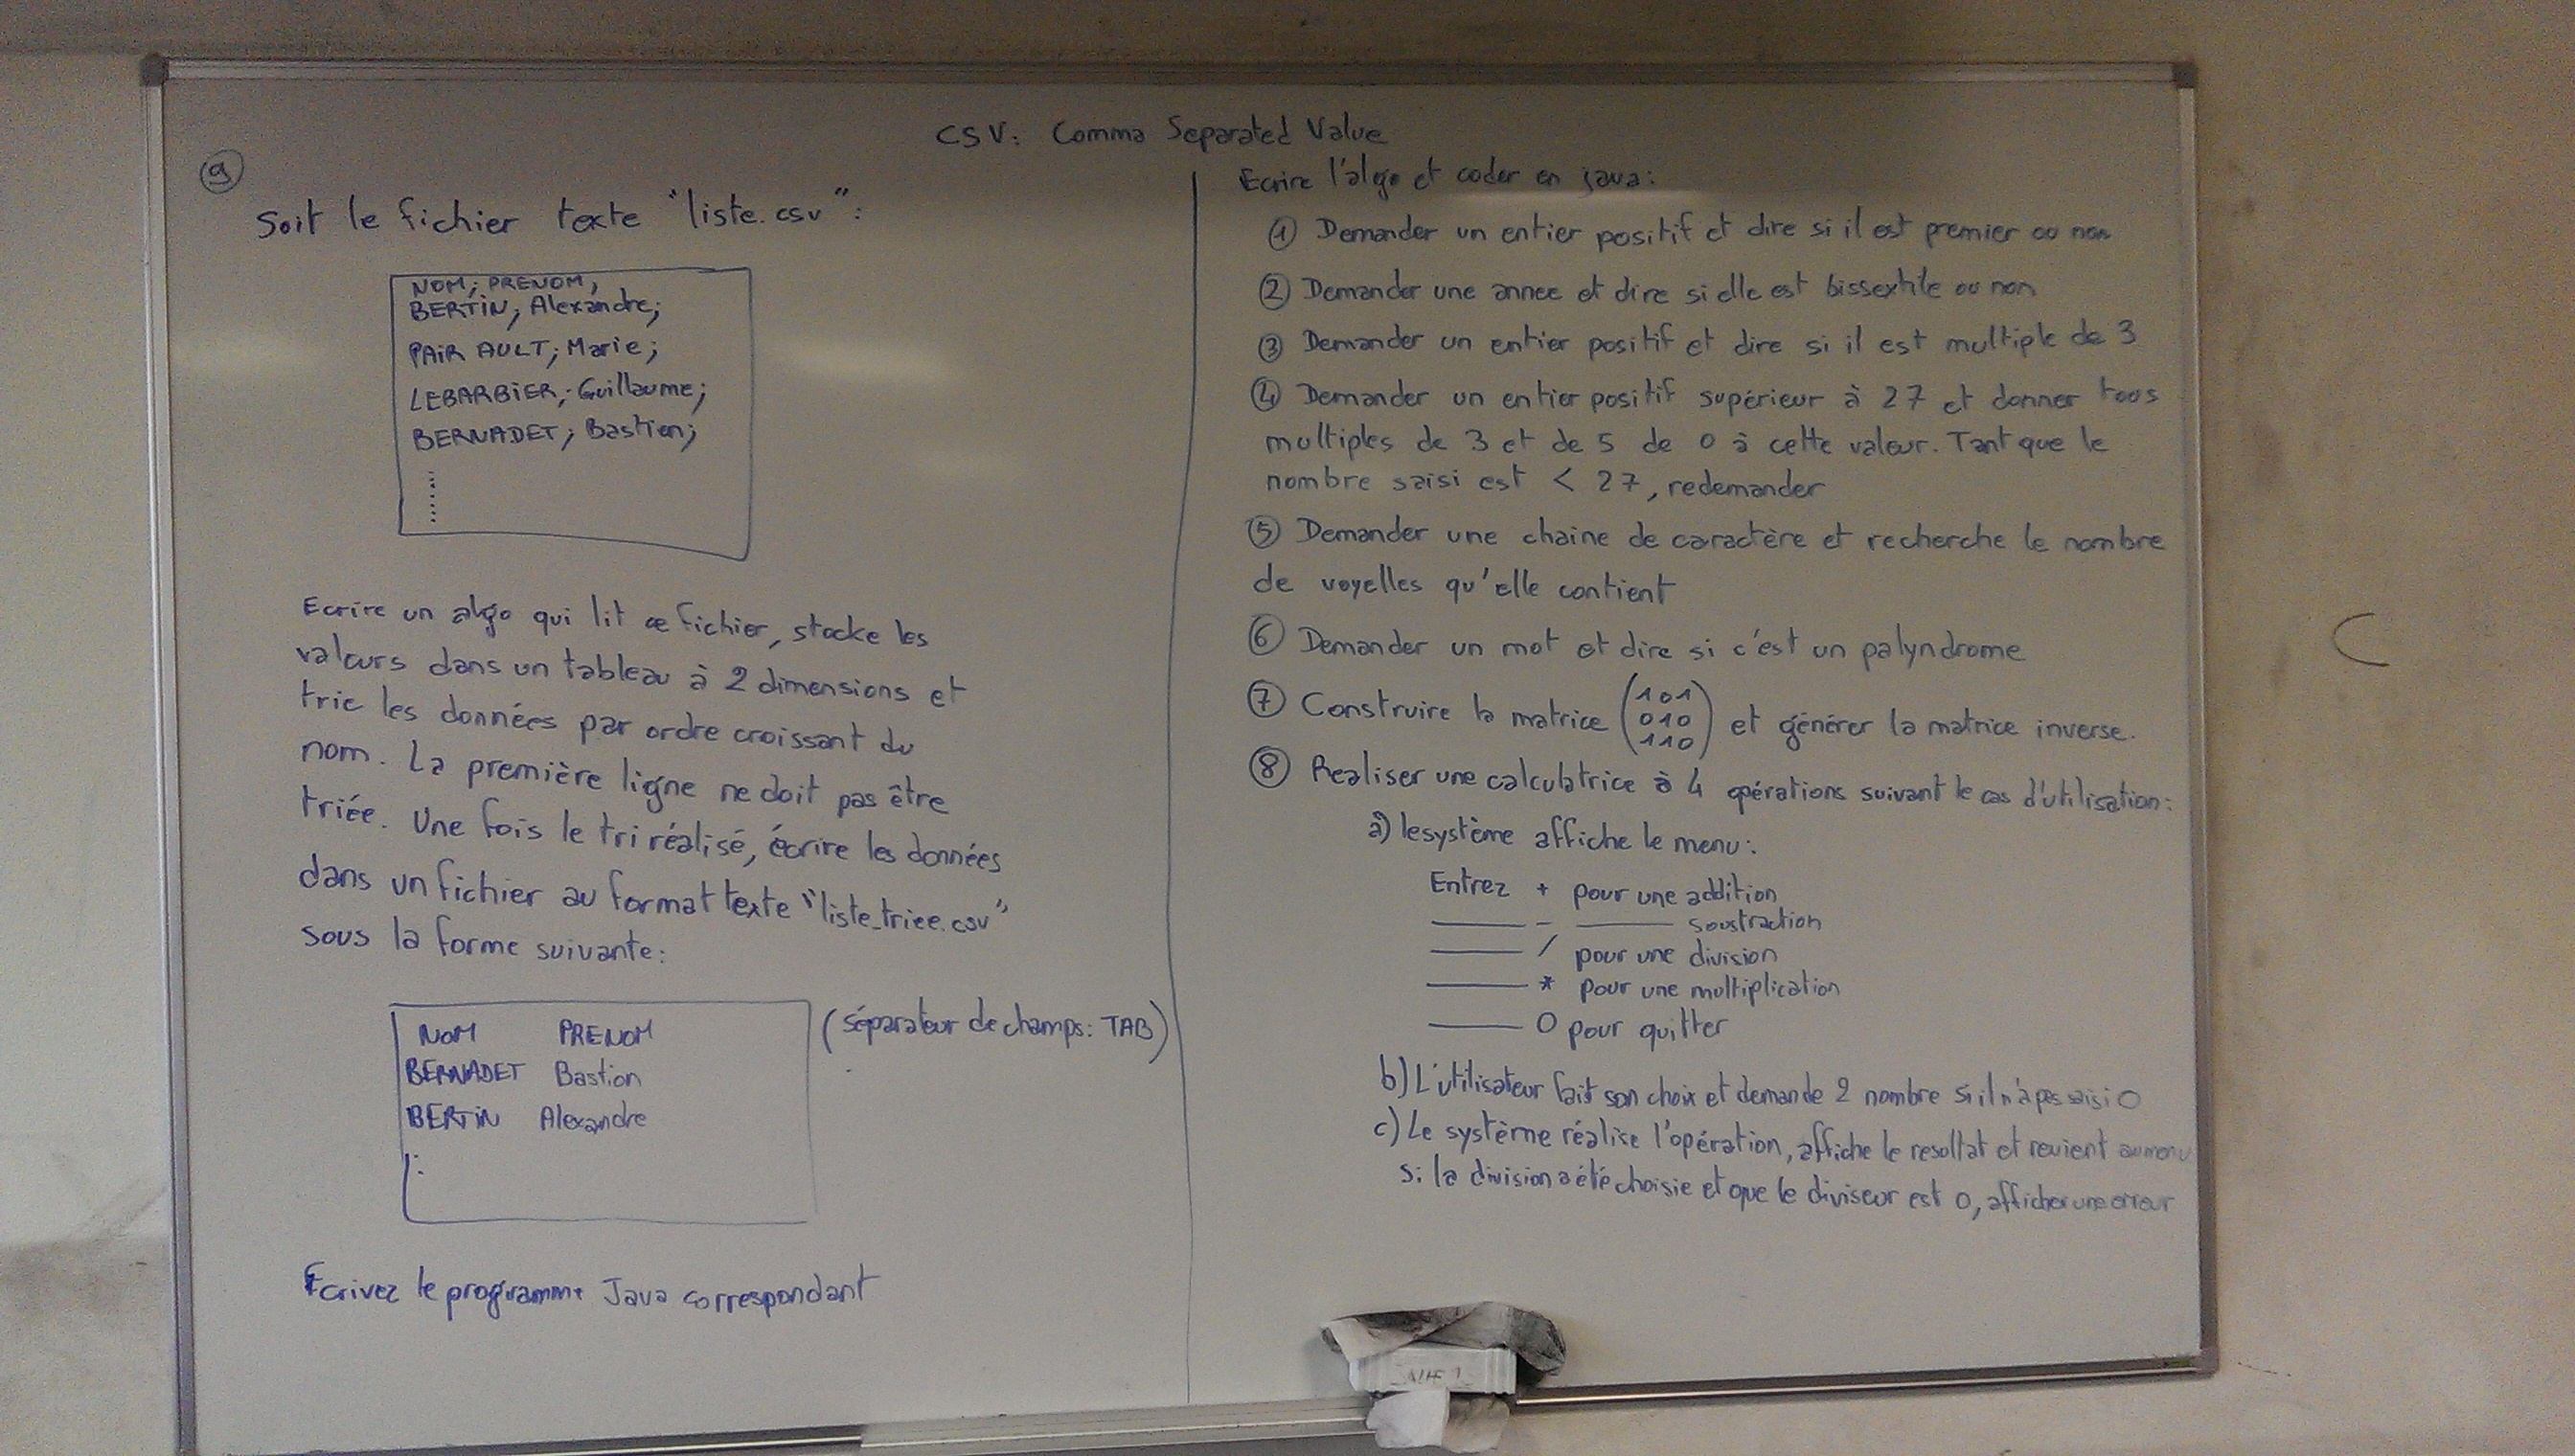 CSV: Comma Separated Value
9
Soit le fichier texte "liste.csv":
NOM; PRENOM;
BERTIN; Alexandre;
PAIRAULT; Marie;
LEBARBIER; Guillaume;
BERNADET; Bastien;
Ecrire un algo qui lit ce fichier, stocke les
valeurs dans un tableau à 2 dimensions et
trie les données par ordre croissant du
nom. La première ligne ne doit pas être
triée. Une fois le tri réalisé, écrire les données
dans un fichier au format texte "liste_triee.csv"
sous la forme suivante:
NOM PRENOM (séparateur de champs: TAB)
BERNADET Bastien
BERTIN Alexandre
Ecrivez le programme Java correspondant
Ecrire l'algo et coder en java:
1 Demander un entier positif et dire si il est premier ou non
2 Demander une annee et dire si elle est bissextile ou non
3 Demander un entier positif et dire si il est multiple de 3
4 Demander un entier positif supérieur à 27 et donner tous
multiples de 3 et de 5 de 0 à cette valeur. Tant que le
nombre saisi est < 27, redemander
5 Demander une chaine de caractère et recherche le nombre
de voyelles qu'elle contient
6 Demander un mot et dire si c'est un palyndrome
7 Construire la matrice (101 010 110) et générer la matrice inverse.
8 Realiser une calculatrice à 4 opérations suivant le cas d'utilisation:
a) le système affiche le menu:
Entrez + pour une addition
- soustraction
/ pour une division
* pour une multiplication
0 pour quitter
b) L'utilisateur fait son choix et demande 2 nombre si il n'a pas saisi 0
c) Le système réalise l'opération, affiche le resultat et revient au menu
Si la division a été choisie et que le diviseur est 0, afficher une erreur